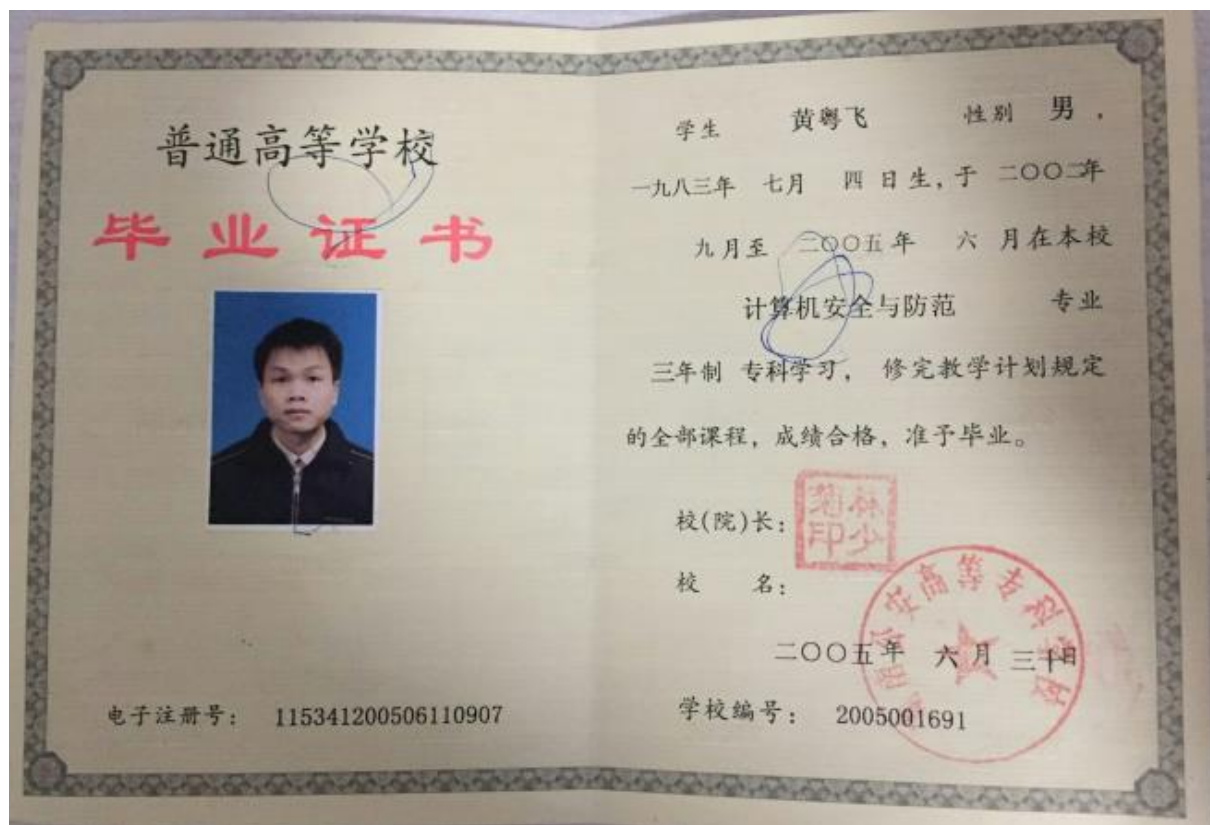 普通高等学校
毕业证书
电子注册号： 115341200506110907
学生 黄粤飞 性别 男，
一九八三年 七月 四 日生，于 二〇〇二年
九月至 二〇〇五年 六 月在本校
计算机安全与防范 专业
三年制 专科学习， 修完教学计划规定
的全部课程，成绩合格，准予毕业。
校(院)长：
林少菊印
校 名：
公安高等专科学校
二〇〇五年 六月 三十日
学校编号： 2005001691